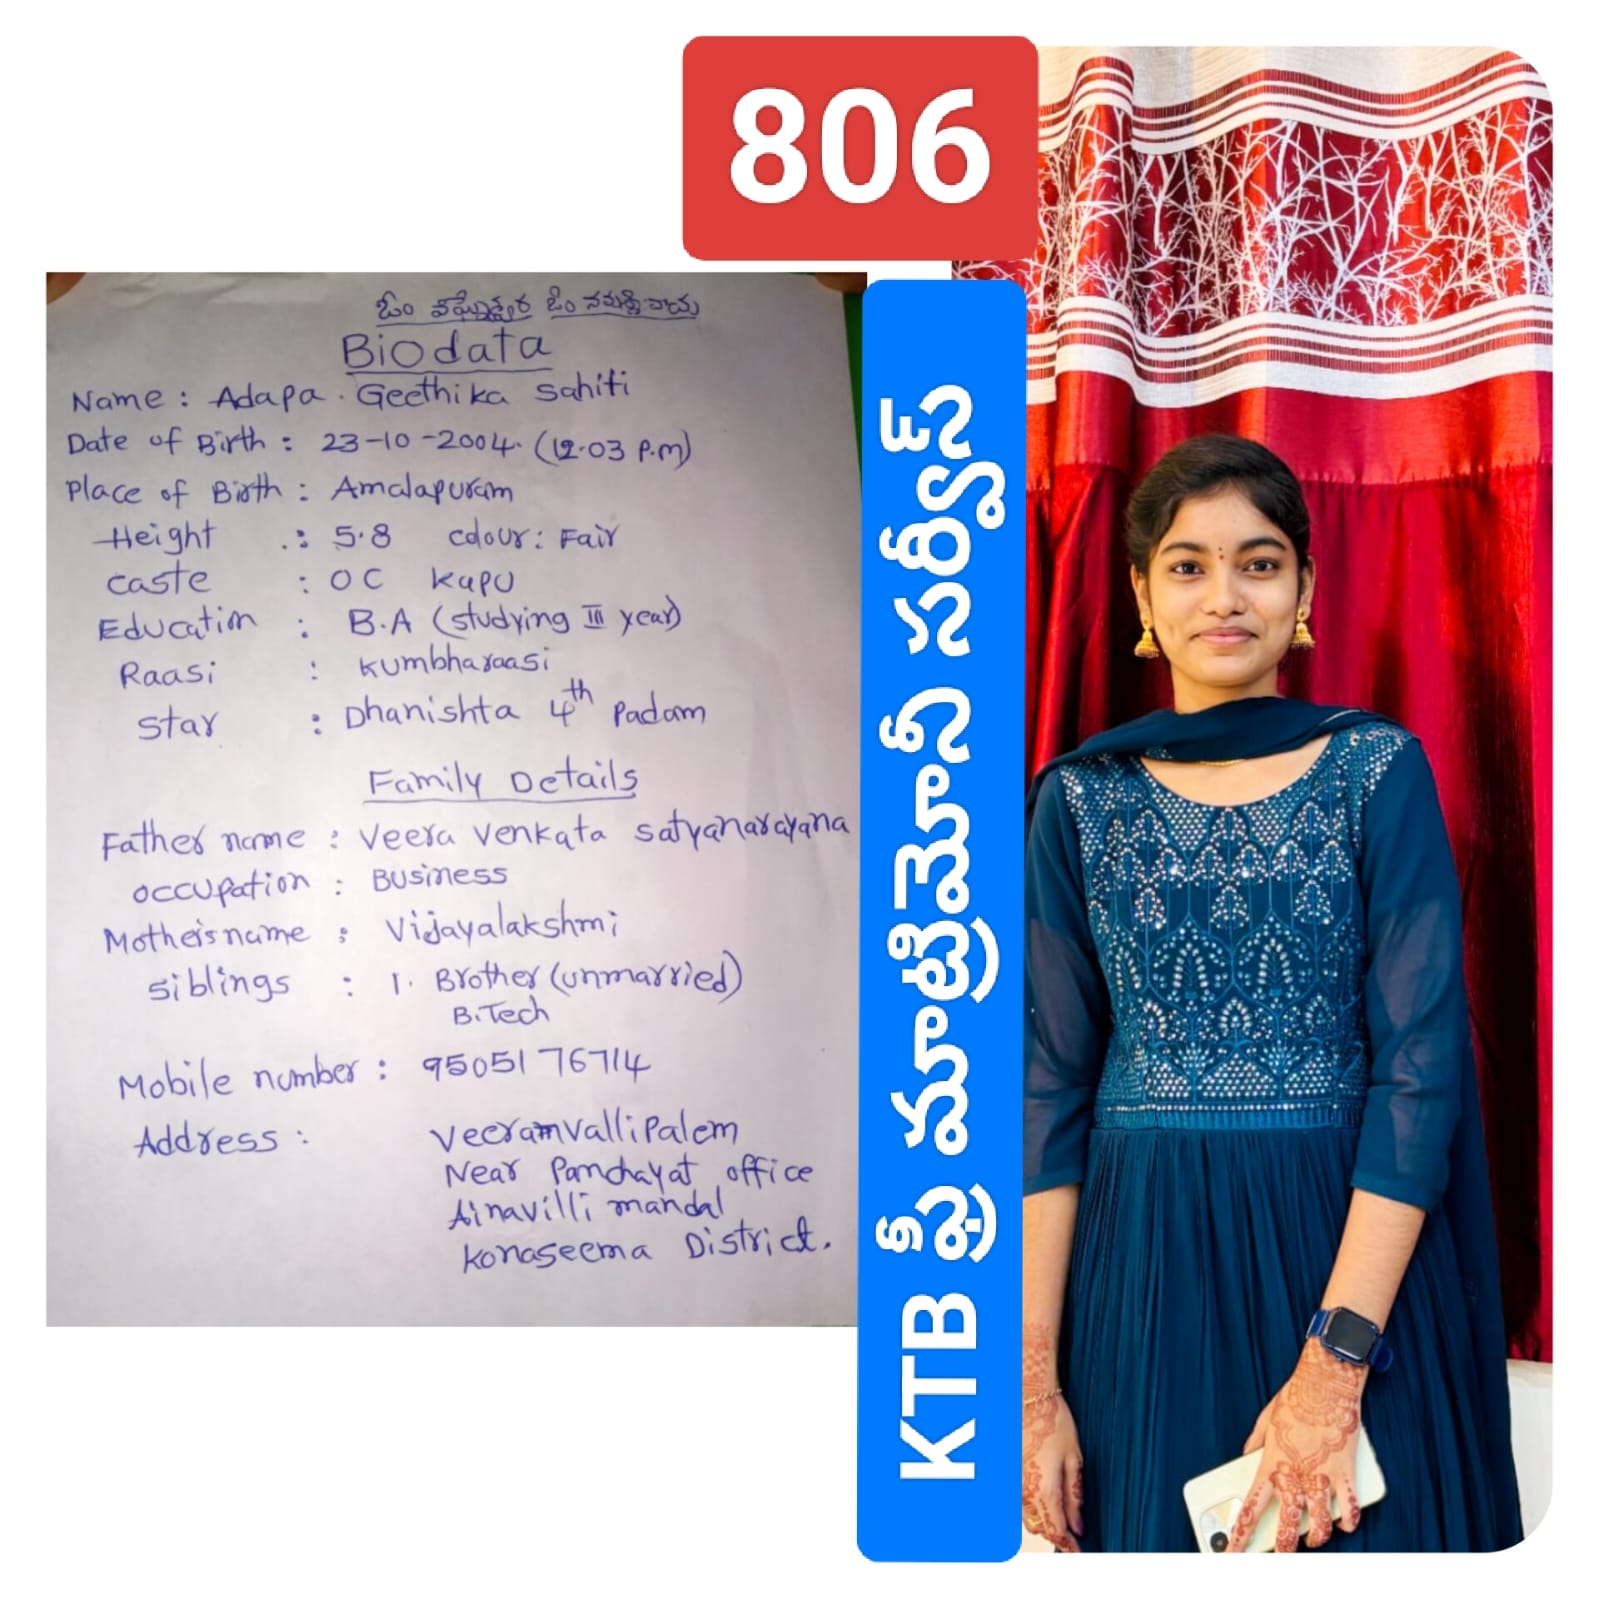 806
ఓం విఘ్నేశ్వర ఓం నమశ్శివాయ
Biodata
Name : Adapa . Geethika Sahiti
Date of Birth : 23-10-2004. (12.03 P.m)
Place of Birth : Amalapuram
Height .: 5.8 colour : Fair
caste : OC kapu
Education : B.A (studying III year)
Raasi : kumbharaasi
Star : Dhanishta 4th Padam
Family Details
Father name : Veera Venkata Satyanarayana
occupation : Business
Mother's name : Vijayalakshmi
Siblings : 1. Brother (unmarried)
B.Tech
Mobile number : 9505176714
Address : Veeramvallipalem
Near Panchayat office
Ainavilli mandal
Konaseema District.
KTB ఫ్రీ మాట్రిమోనీ సర్వీస్